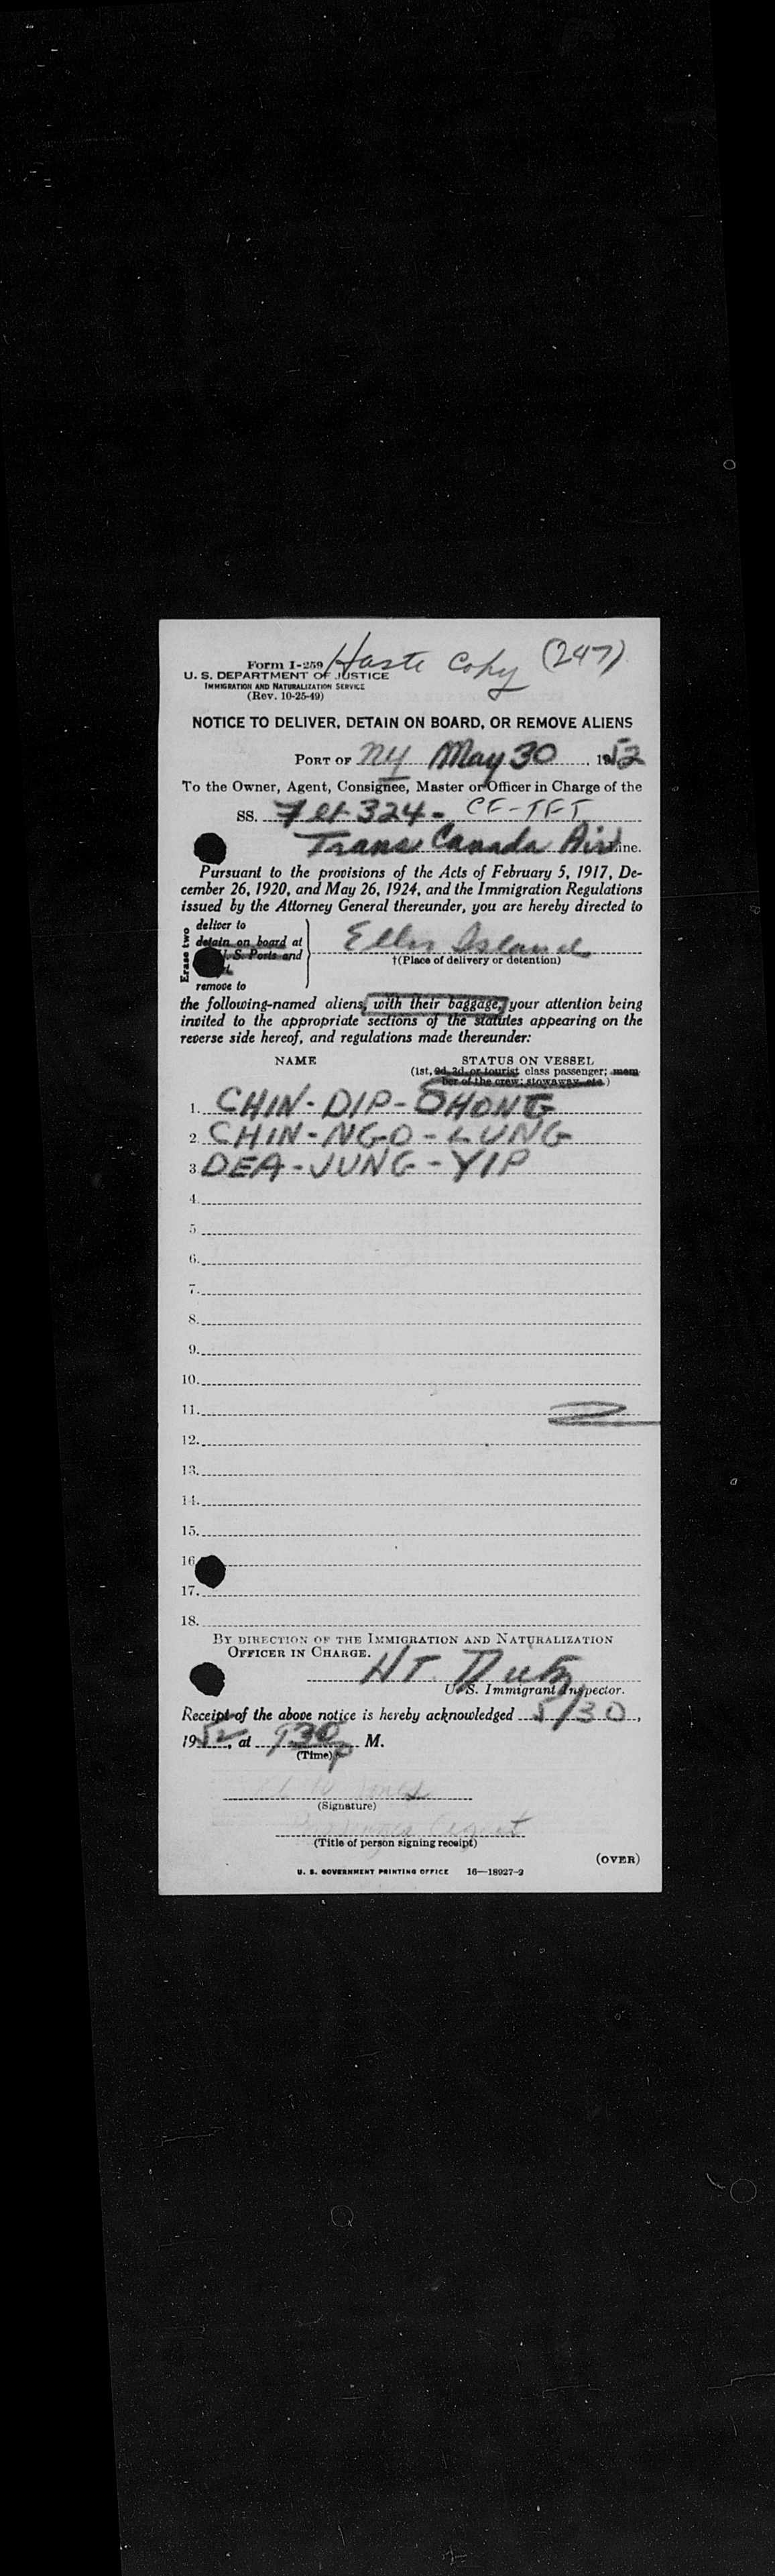 Form I-259 Haste Copy (247)
U. S. DEPARTMENT OF JUSTICE
IMMIGRATION AND NATURALIZATION SERVICE
(Rev. 10-25-49)
NOTICE TO DELIVER, DETAIN ON BOARD, OR REMOVE ALIENS
PORT OF NY May 30, 1952
To the Owner, Agent, Consignee, Master or Officer in Charge of the
SS. Flt 324 - CF-TFT
Trans Canada Air Line.
Pursuant to the provisions of the Acts of February 5, 1917, De-
cember 26, 1920, and May 26, 1924, and the Immigration Regulations
issued by the Attorney General thereunder, you are hereby directed to
Erase two
deliver to
detain on board at
U. S. Ports and
remove to
Ellis Island
†(Place of delivery or detention)
the following-named aliens, with their baggage, your attention being
invited to the appropriate sections of the statutes appearing on the
reverse side hereof, and regulations made thereunder:
NAME STATUS ON VESSEL
(1st, 2d, 3d, or tourist class passenger; mem-
ber of the crew; stowaway, etc.)
1. CHIN-DIP-SHONG
2. CHIN-NGO-LUNG
3. DEA-JUNG-YIP
4.
5.
6.
7.
8.
9.
10.
11.
12.
13.
14.
15.
16.
17.
18.
BY DIRECTION OF THE IMMIGRATION AND NATURALIZATION
OFFICER IN CHARGE.
H T.
U. S. Immigrant Inspector.
Receipt of the above notice is hereby acknowledged 5/30,
1952, at 930 p M.
(Time)
Jones
(Signature)
Agent
(Title of person signing receipt)
(OVER)
U. S. GOVERNMENT PRINTING OFFICE 16—18927-2